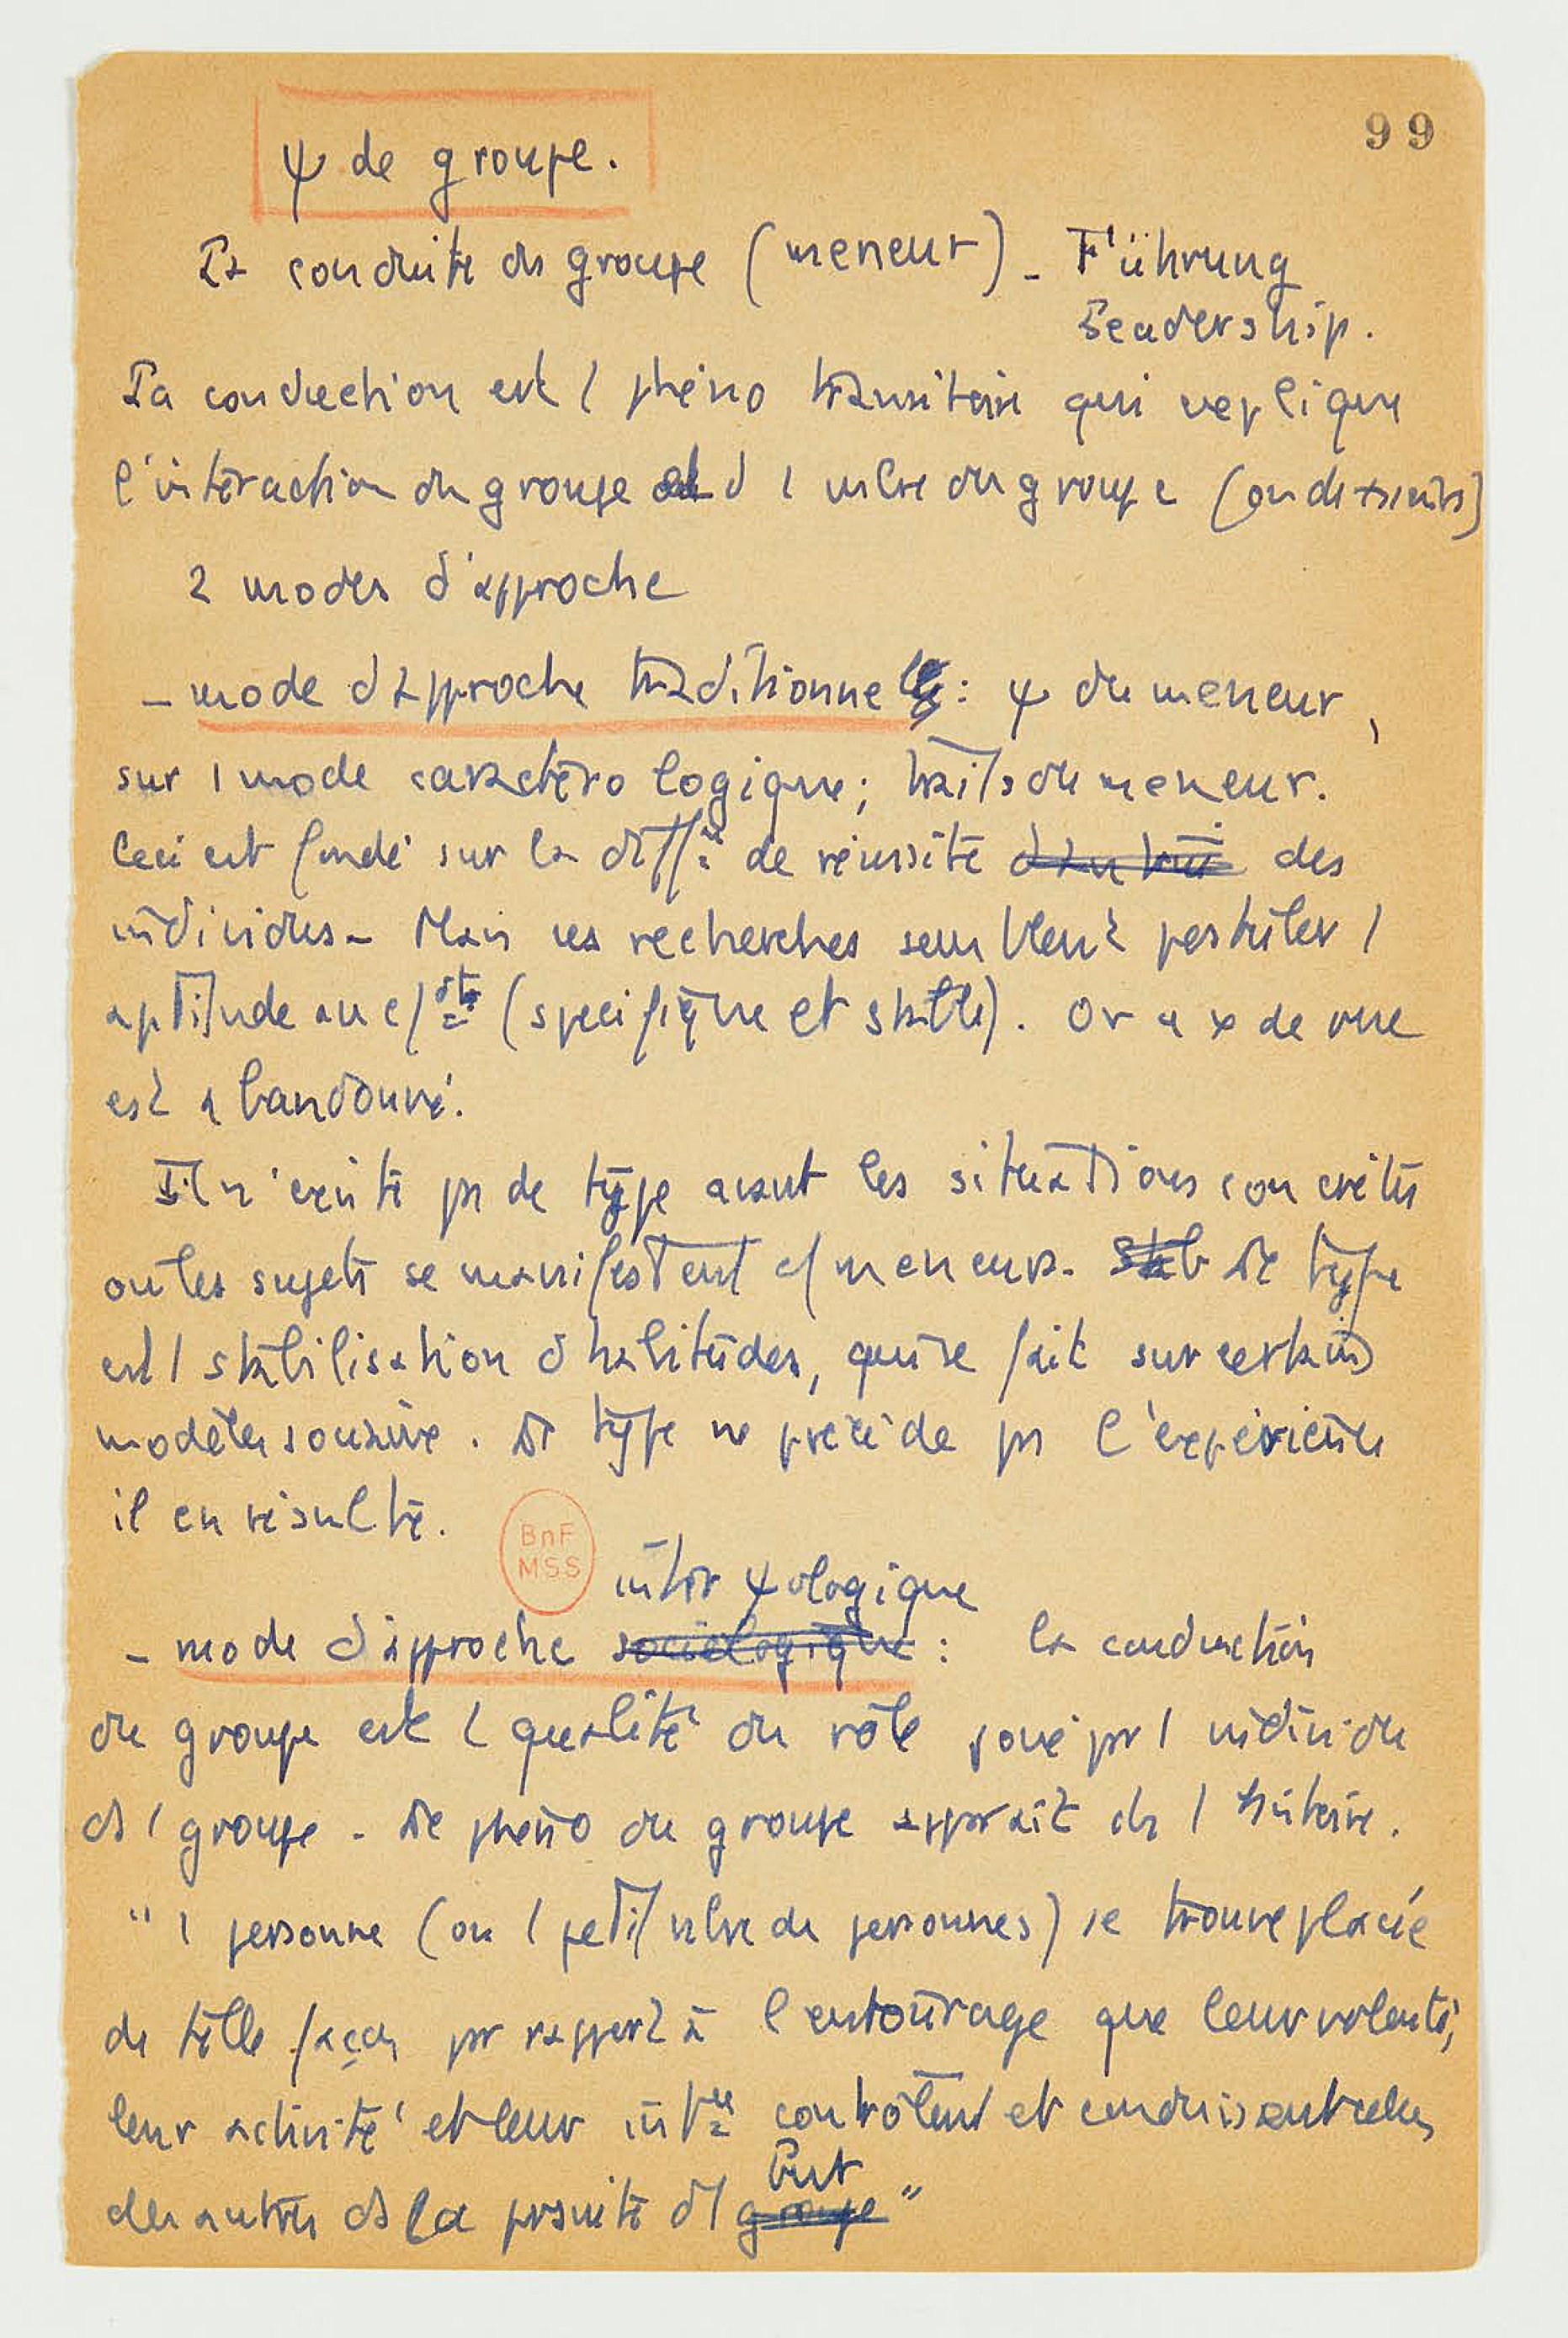 99
ψ de groupe.
La conduite du groupe (meneur) - Führung
Leadership.
La conduction est 1 phéno transitoire qui explique
l'interaction du groupe et d 1 mbre du groupe (ou de plusieurs)
2 modes d'approche
- mode d'approche traditionnel : ψ du meneur,
sur 1 mode caractérologique ; traits du meneur.
Ceci est fondé sur la diff ce de réussite des
individus - Mais ces recherches semblent postuler 1
aptitude au c/dt (spécifique et stable). Or ce x de vue
est abandonné.
Il n'existe ps de type avant les situations concrètes
où les sujets se manifestent c/ meneurs. Le type
est 1 stabilisation d'habitudes, qui se fait sur certains
modèles sociaux. Le type ne précède ps l'expérience
il en résulte.
BnF
MSS
inter ψologique
- mode d'approche sociologique : la conduction
du groupe est 1 qualité du rôle joué par 1 individu
ds 1 groupe - Le phéno du groupe apparaît ds 1 histoire.
"1 personne (ou 1 petit nbre de personnes) se trouve placée
de telle façon pr rapport à l'entourage que leur volonté,
leur activité et leur int ce contrôlent et conduisent celles
des autres ds la prsuite d'1 but
groupe"